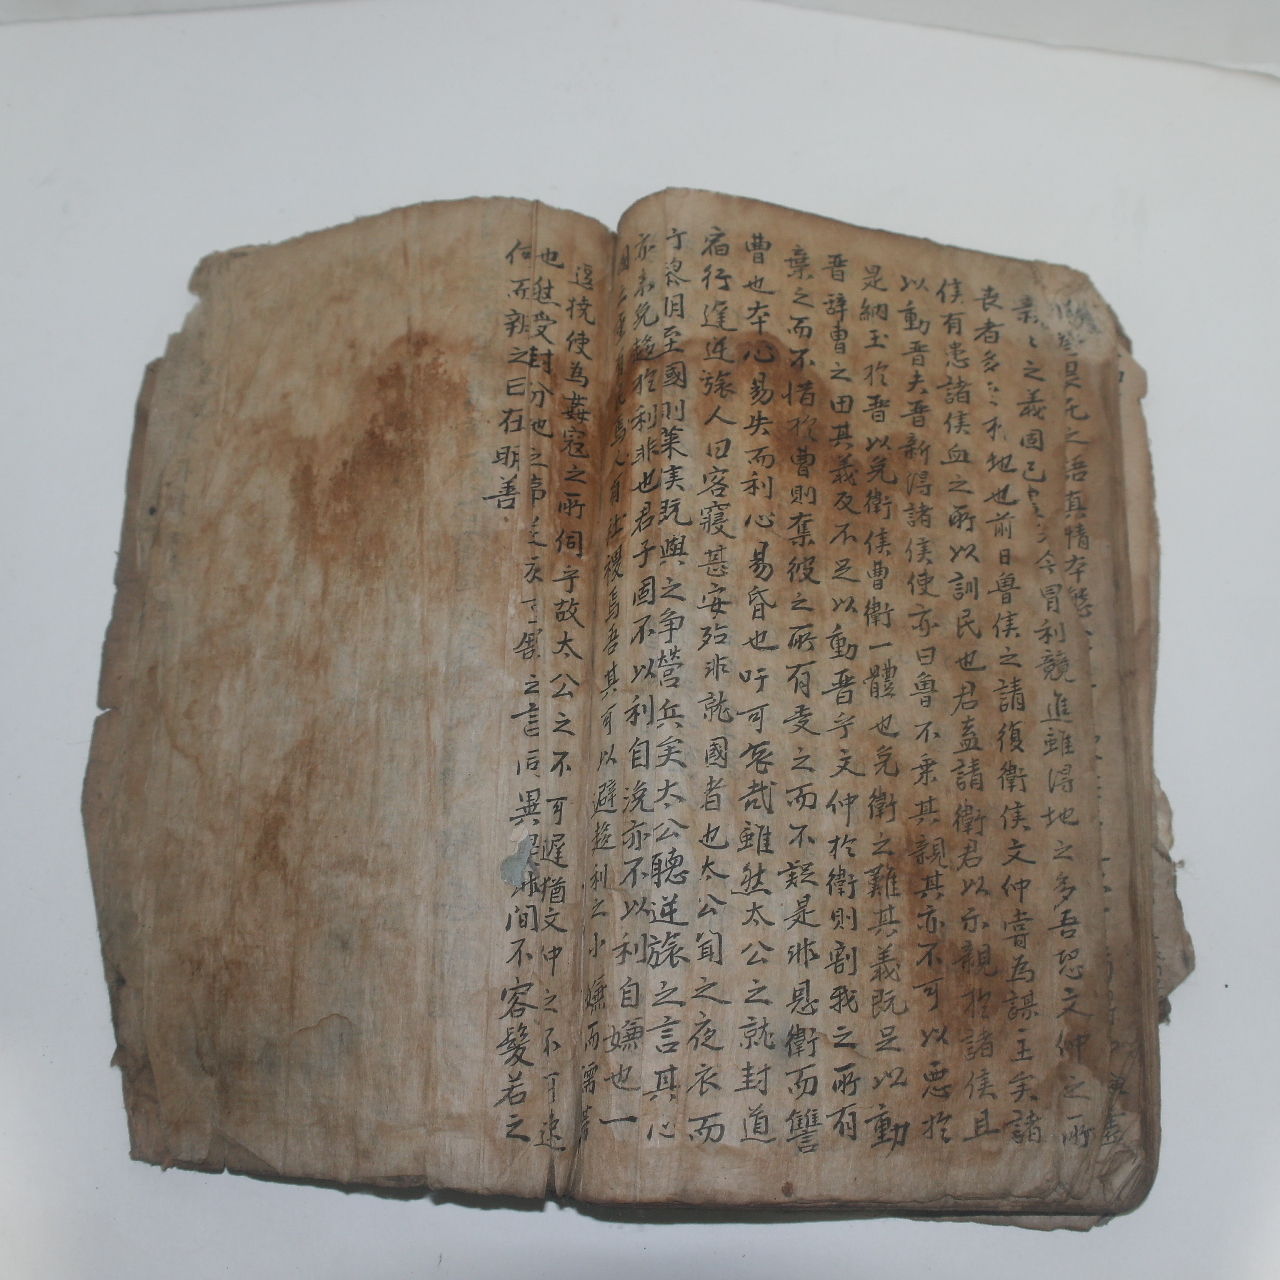 是 之語真情本態
親 之義固已 冒利競進雖得地之多吾恐文仲之所
喪者多 地也前日魯侯之請復衛侯文仲嘗為謀主矣諸
侯有患諸侯血之所以訓民也君盍請衛君以示親於諸侯且
以動晋夫晋新得諸侯使亦曰魯不棄其親其亦不可以惡於
是納玉於晋以免衛侯曹衛一體也免衛之難其義既足以動
晋辞曹之田其義反不足以動晋乎文仲於衛則割我之所有
棄之而不惜於曹則奪彼之所有受之而不疑是非恩衛而讐
曹也本心易失而利心易昏也吁可哀哉雖然太公之就封道
宿行遲逆旅人曰客寢甚安殆非就國者也太公聞之夜衣而
行黎明至國則萊侯既與之争營兵矣太公聽逆旅之言其心
亦未免趍於利非也君子固不以利自浼亦不以利自嫌也一
國之 焉吾其可以避趍利之小嫌而
逗撓使為姦寇之所伺乎故太公之不可遲猶文仲之不可速
也 受封分也之 之言 異是非間不容髮若之
何而辨之曰在明善